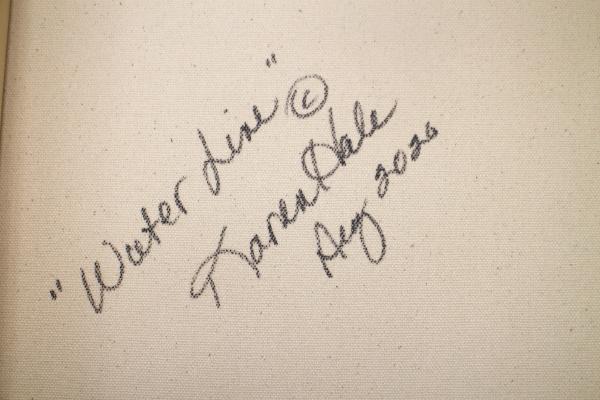 "Water Line" ©
Karen Hale
Aug 2020